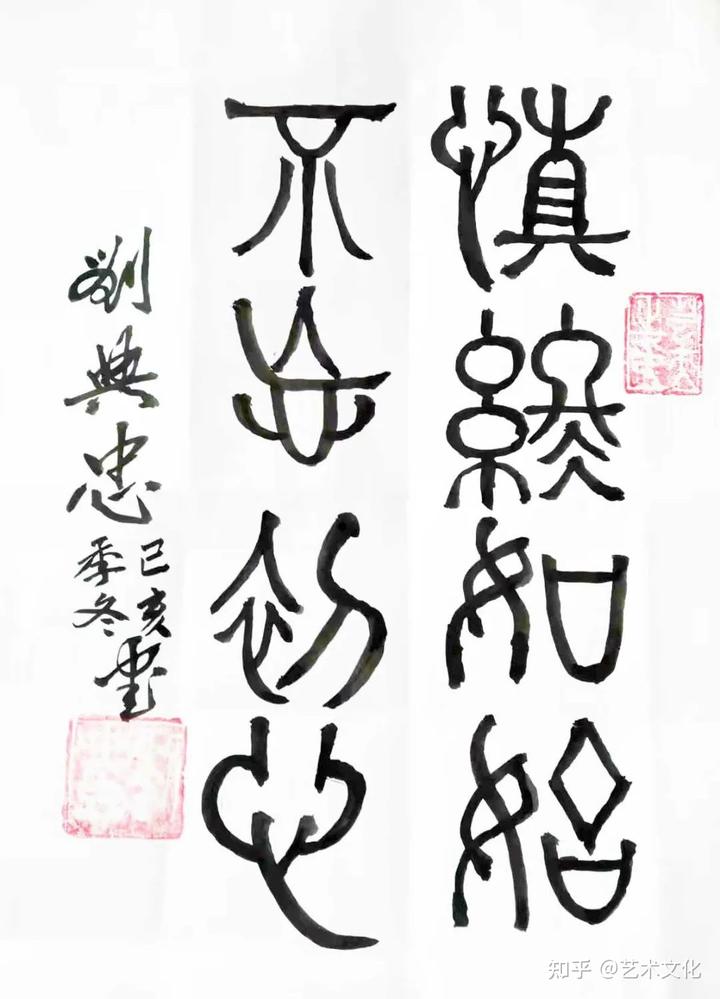 慎終如始
不忘初心
劉典忠
己亥
季冬
書
知乎 @艺术文化